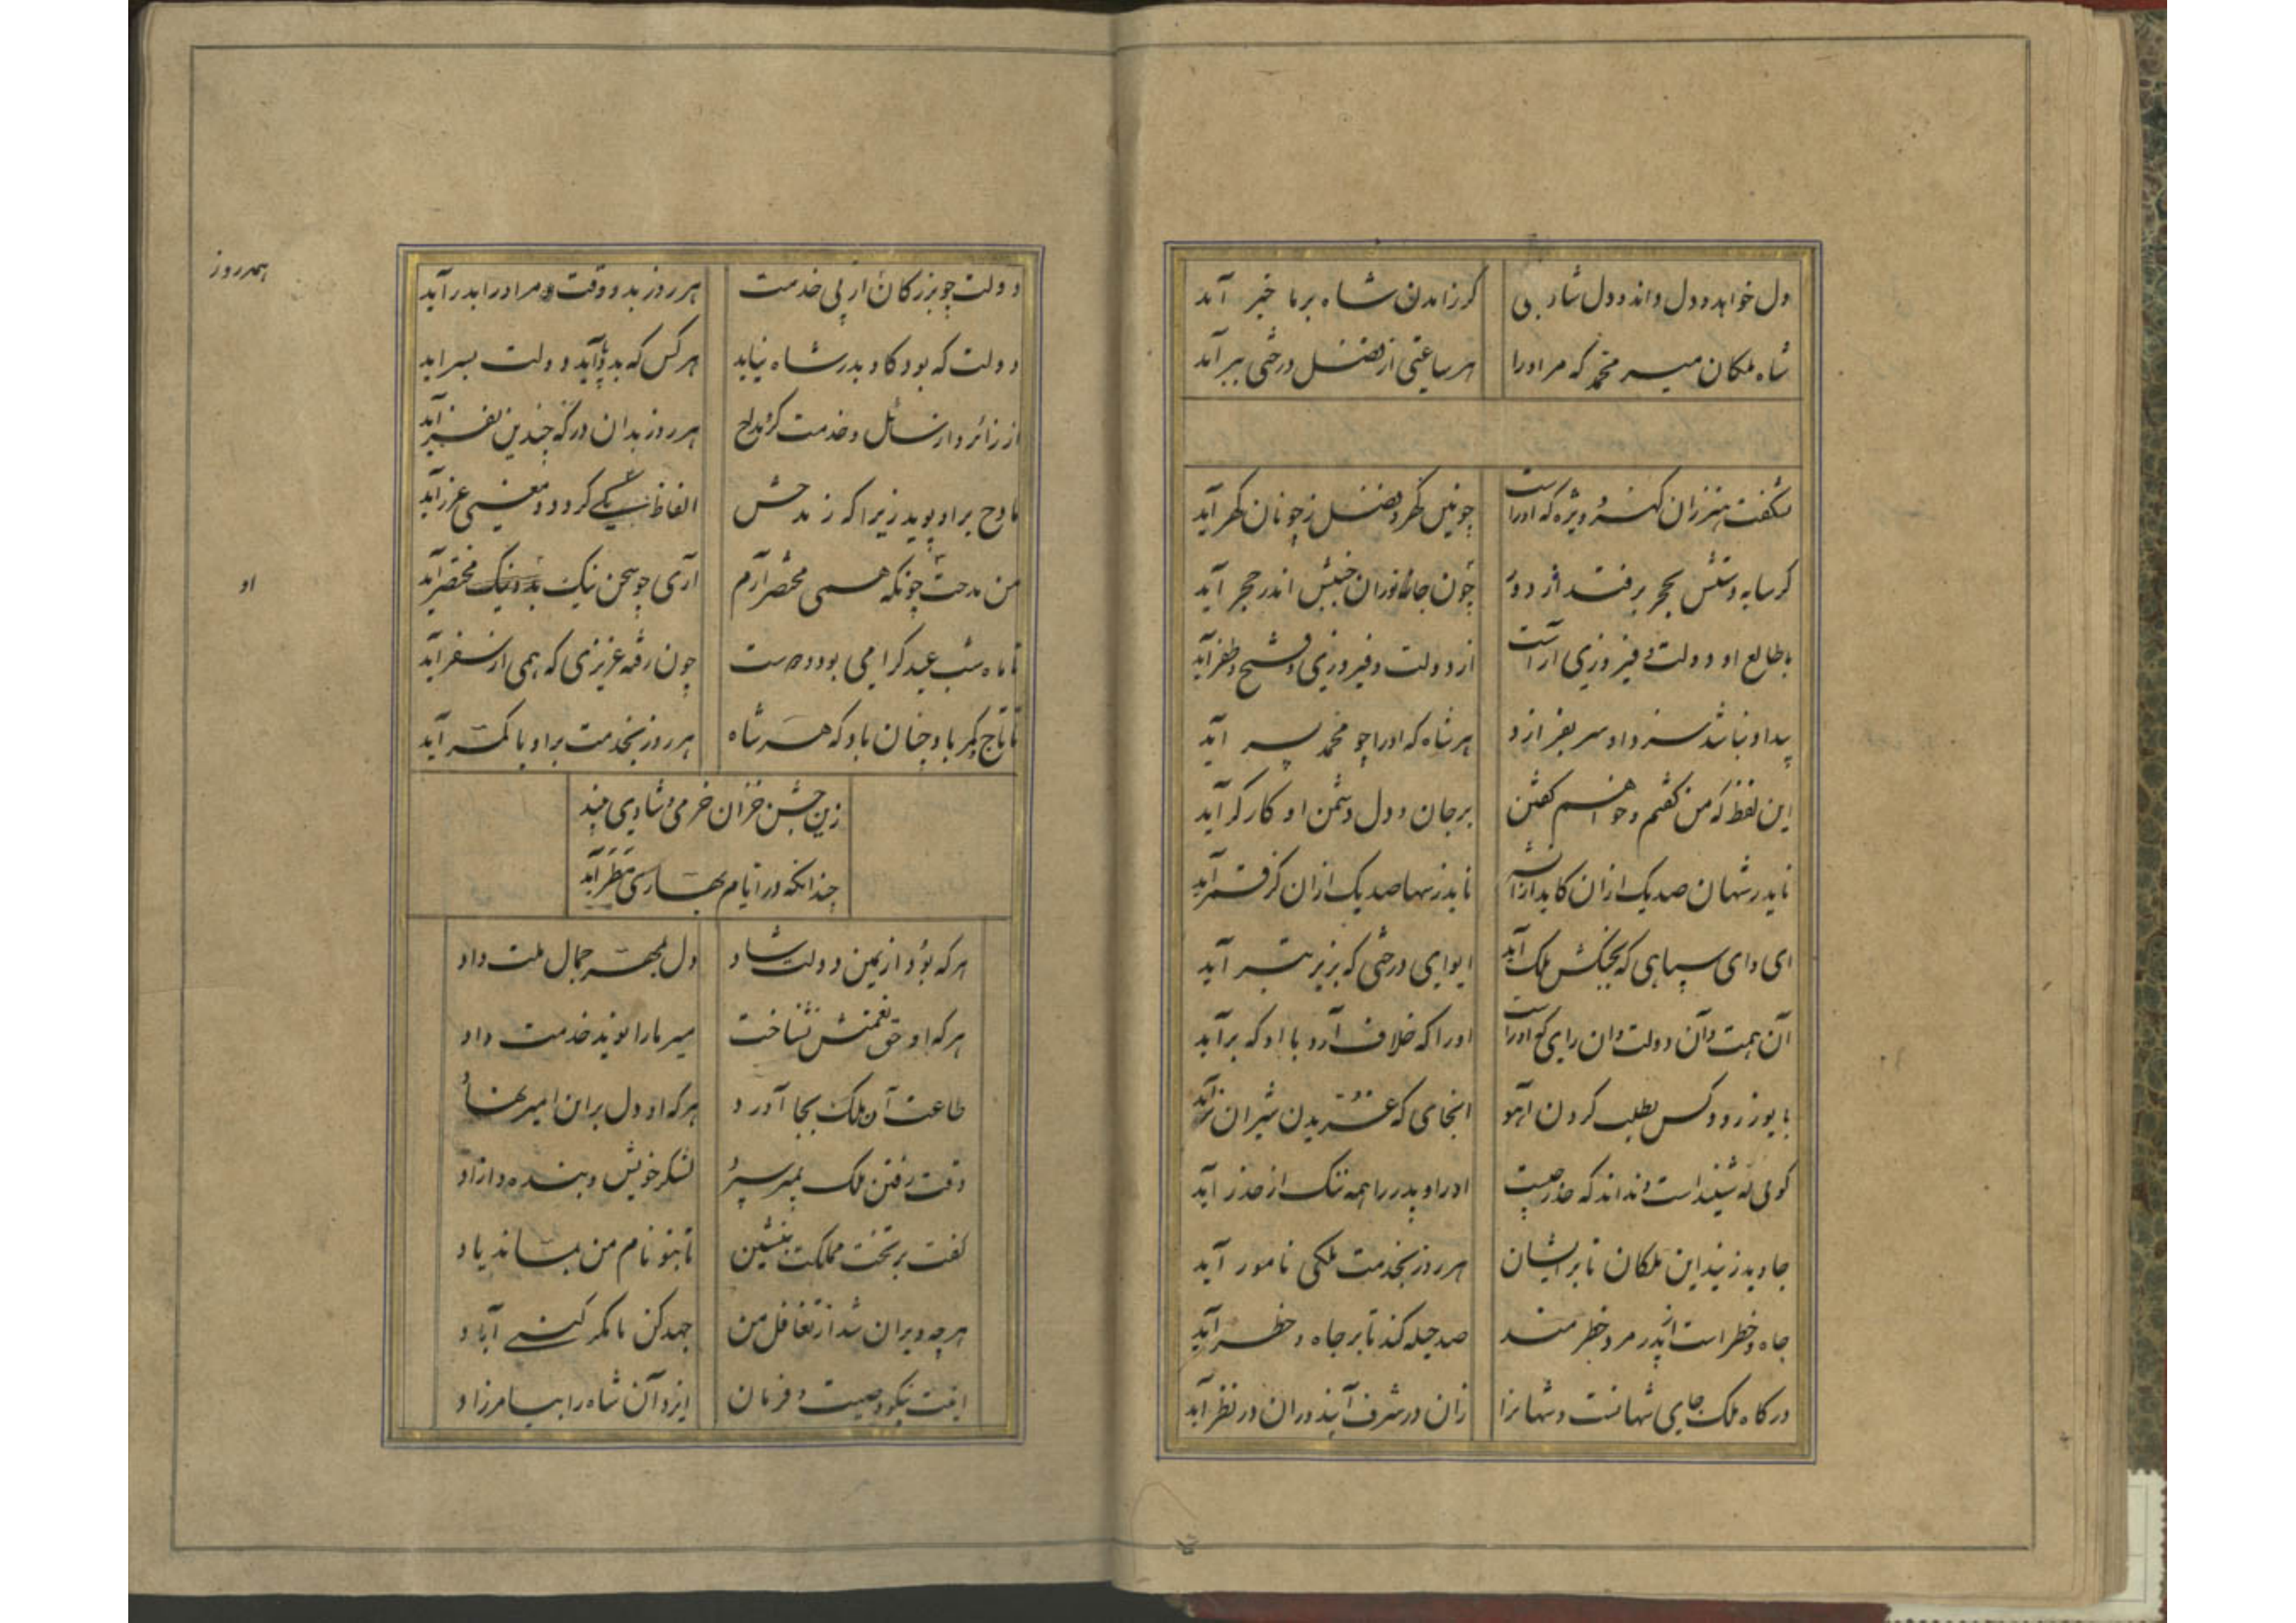 دل خواهد و دل داند و دل شاد بی
کر زامدن شاه برما خبر آید
شاه ملکان میر محمد که مر او را
هر ساعتی از فضل درختی ببر آید
شکفت هنر زان کهر ویژه که او راست
چونین کهر و فضل ز چونان کهر آید
کر سایه دستش بحجر برفتد از دور
چون جانوران جنبش اندر حجر آید
با طالع او دولت و فیروزی آراست
از دولت و فیروزی و فتح و ظفر آید
پیدا و نباشد سزد او سر بفرازد
هر شاه که او را چو محمد پسر آید
این لفظ که من کفتم و خواهم کفتن
بر جان و دل دشمن او کارکر آید
ناید ز شهان صد یک ازان کاید ازان شه
ناید ز سها صد یک ازان کز قمر آید
ای وای سپاهی که بجنکش ملک آید
ایوای درختی که بزیر تبر آید
آن همت و آن دولت و ان رای که او راست
او را که خلاف آرد با او که برآید
با یوز رود کس بطلب کردن آهو
انجای که غریدن شیران نر آید
کوئی نه شنیداست و نداند که حذر چیست
او را و پدر را همه ننک از حذر آید
جاوید زیند این ملکان تا بر ایشان
هر روز بخدمت ملکی نامور آید
جاه و خطر است ایدر مرد خطرمند
صد حیله کند تا بر جاه و خطر آید
درکاه ملک جای شهانست و شهانرا
زان در شرف آیند و ران در نظر آید
دولت چو بزرکان از پی خدمت
هر روز بدو وقت مر او را بدر آید
همه روز
دولت که بود کاو بدر شاه نیاید
هر کس که بدو آید دولت بسر اید
از زائر و از سائل و خدمت کر و مداح
هر روز بدان درکه چندین نفر آید
مادح بر او پوید زیرا که ز مدحش
الفاظ نیکی کردد و معنی غرر آید
من مدحت چونکه همی مختصر آرم
آری چو سخن نیک بود نیک مختصر آید
او
تا ماه شب عید کرامی بود و دوست
چون رفته عزیزی که همی از سفر آید
تا تاج و کمر باد چنان باد که هر شاه
هر روز بخدمت بر او با کمر آید
زین جشن خزان خرمی و شادی بیند
چندانکه در ایام بهاری مطر آید
هر که بود از یمین دولت شاد
دل بمهر جمال ملت داد
هر که او حق نعمتش نشناخت
میر ما را نوید خدمت داد
طاعت آن ملک بجا آورد
هر که او دل بر این امیر نهاد
وقت رفتن ملک بمیر سپرد
لشکر خویش و بنده و ازاد
کفت بر تخت مملکت بنشین
تا بتو نام من بماند یاد
هر چه ویران شد از تغافل من
جهد کن تا مکر کنی آباد
اینت نیکو وصیت و فرمان
ایزد آن شاه را بیامرزاد